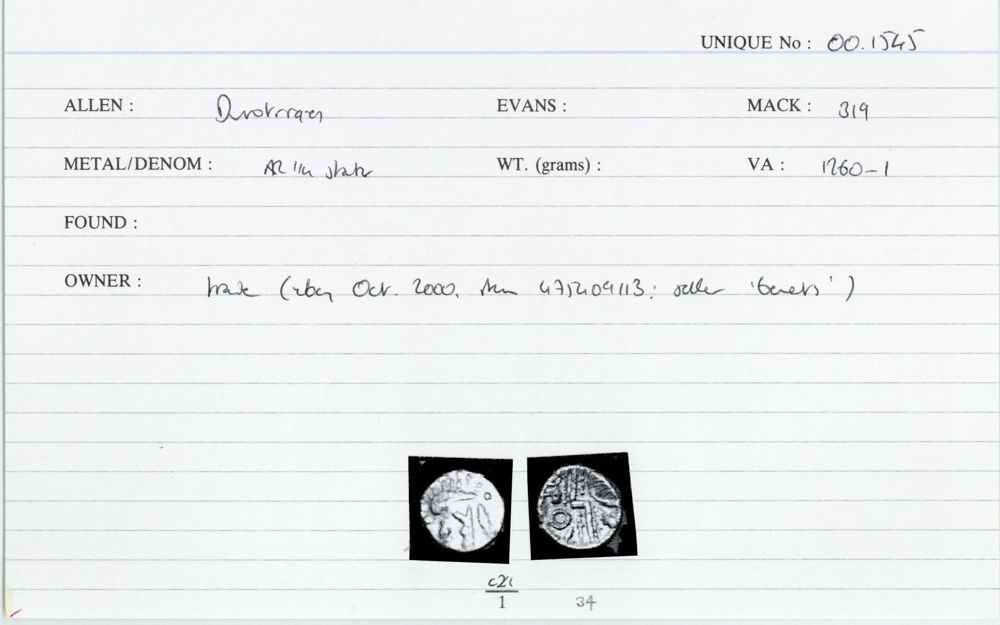 UNIQUE No : 00.1545
ALLEN : Durotriges EVANS : MACK : 319
METAL/DENOM : AR 1/4 stater WT. (grams) : VA : 1260-1
FOUND :
OWNER : trade (ebay Oct. 2000, item 475409113; seller ' ')
1
34